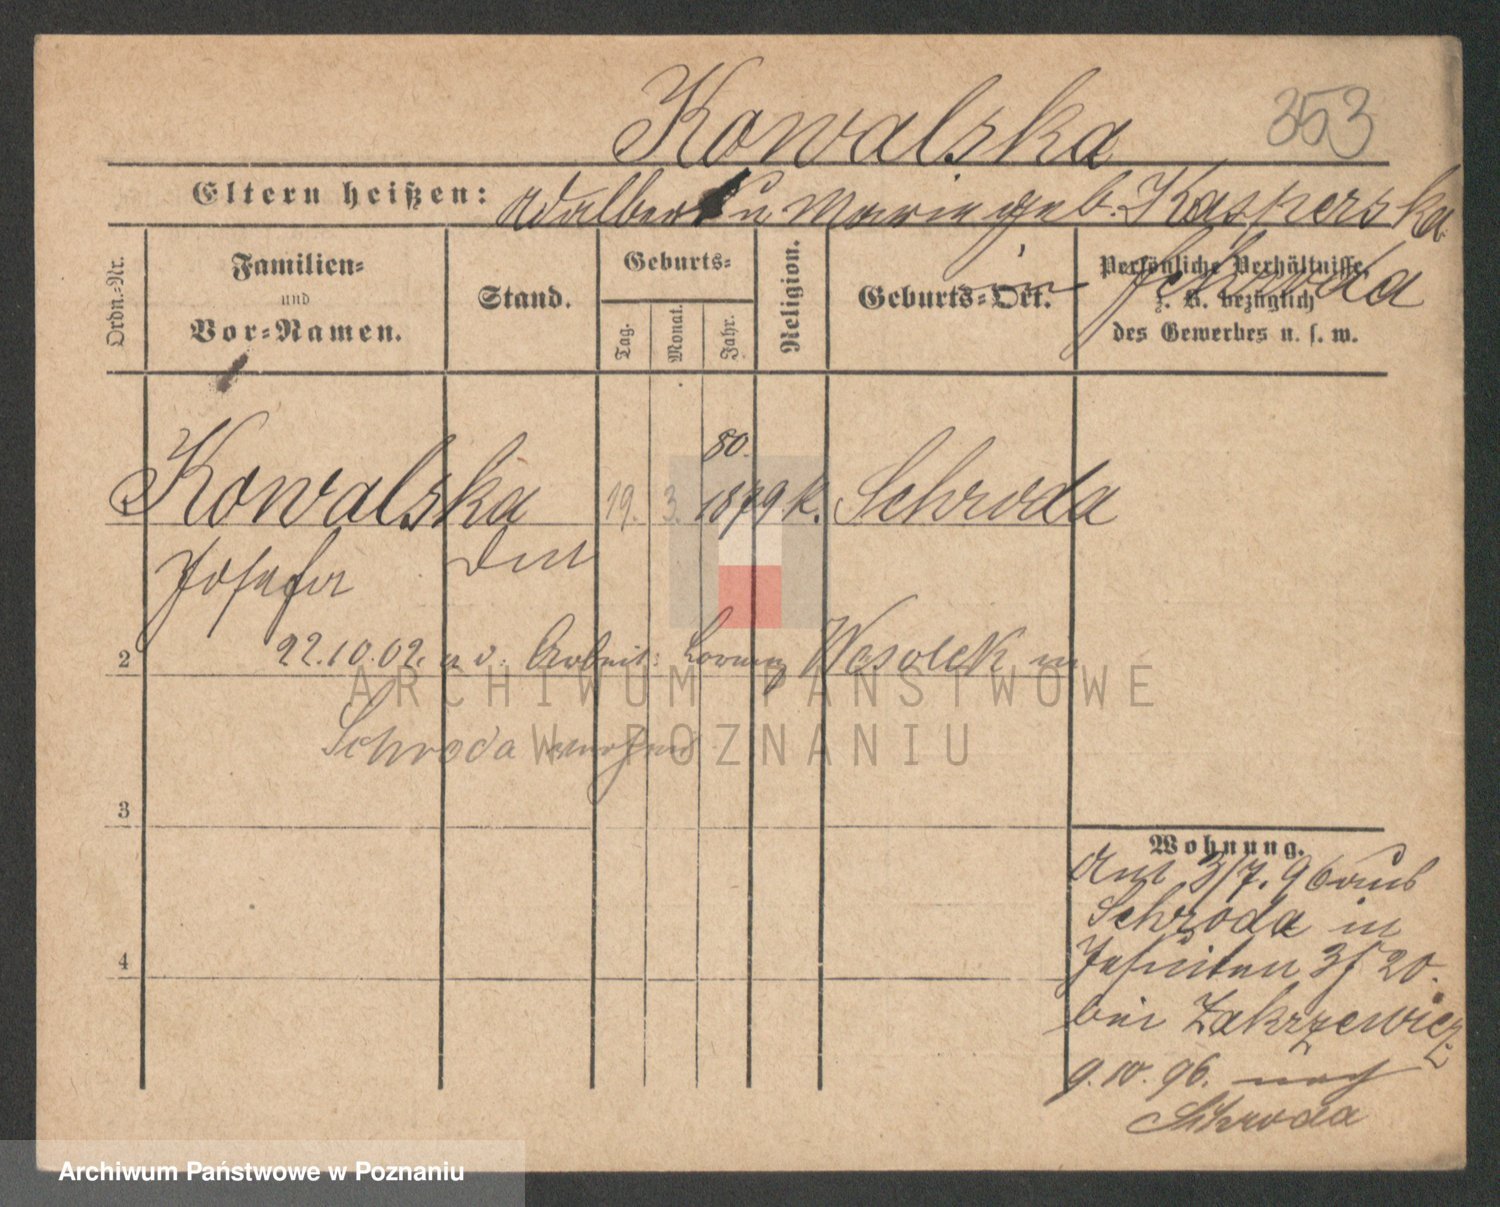 Kowalska
353
Eltern heißen: Adalbert u Marie geb. Kasperska
in Schroda
Ordn.-Nr.
Familien-
und
Vor-Namen.
Stand.
Geburts-
Tag.
Monat.
Jahr.
Religion.
Geburts-Ort.
Persönliche Verhältnisse,
z. B. bezüglich
des Gewerbes u. s. w.
80.
Kowalska 19. 3. 1879 k. Schroda
Josefa
2 22.10.02. Arbeit: Lorenz Wesolek in
Schroda
3
4
Wohnung.
Am 3/7. 96 aus
Schroda in
Jesuiten 20.
bei Zakrzewicz
9.10.96. nach
Schroda
ARCHIWUM PAŃSTWOWE
W POZNANIU
Archiwum Państwowe w Poznaniu